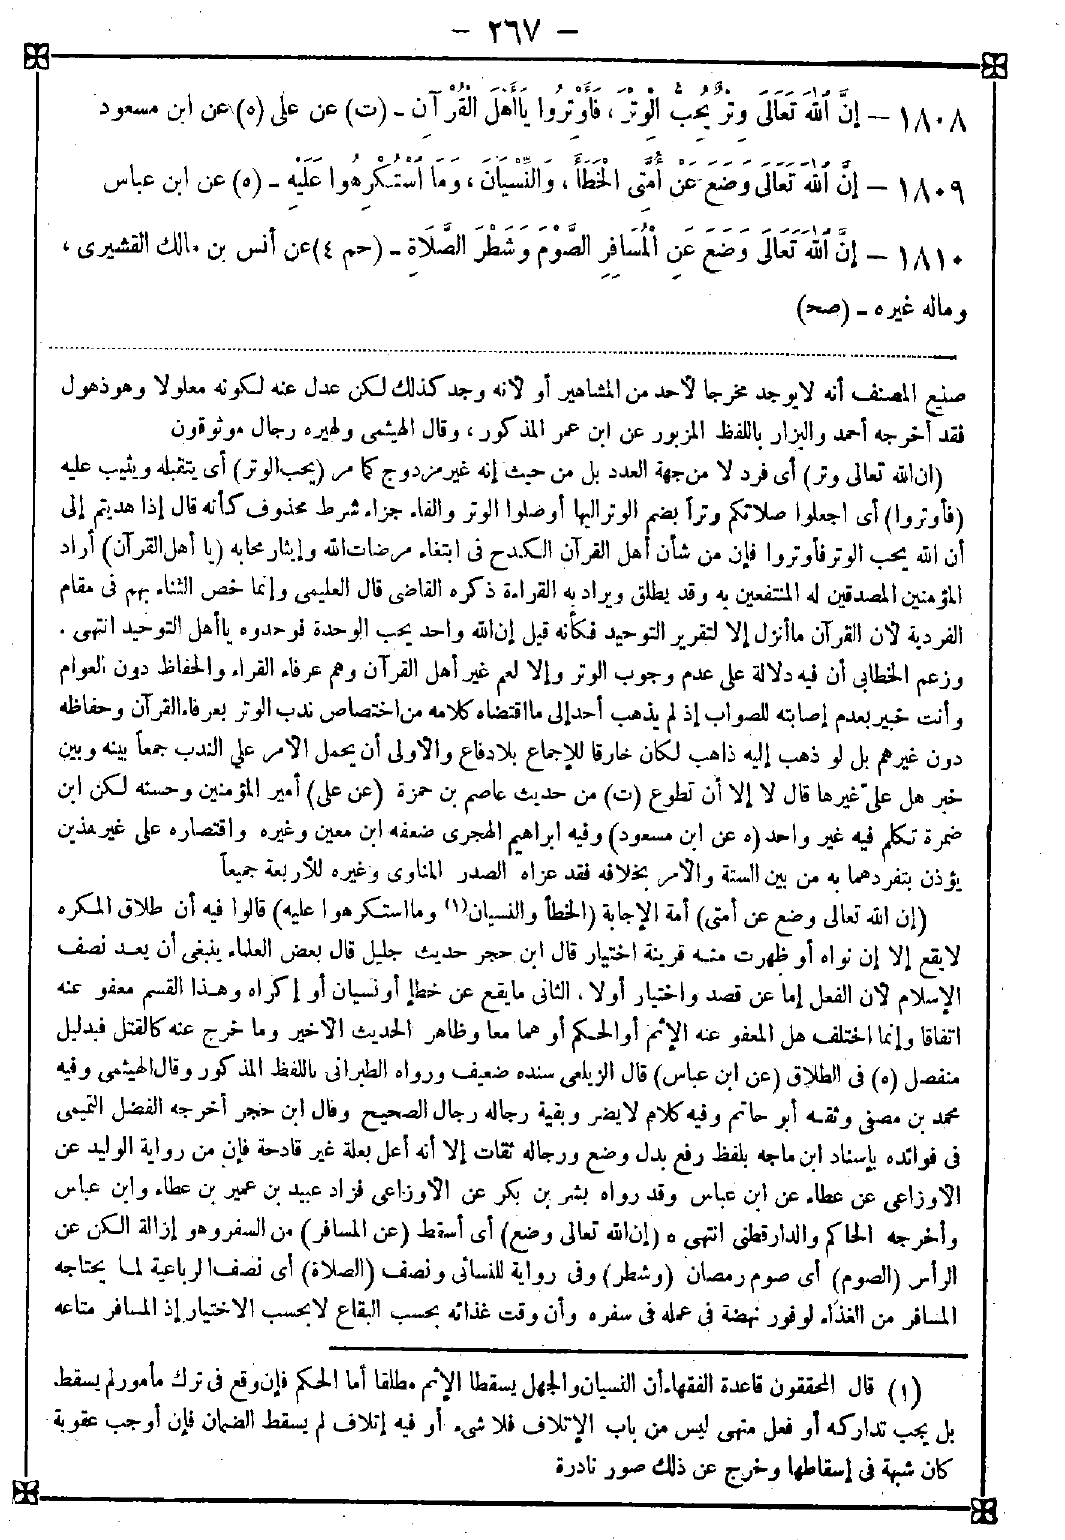 - ٢٦٧ -
١٨٠٨ – إِنَّ اللهَ تَعَالَى وِتْرٌ يُحِبُّ الْوِتْرَ، فَأَوْتِرُوا يَا أَهْلَ الْقُرْآنِ - (ت) عن على (ه) عن ابن مسعود
١٨٠٩ – إِنَّ اللهَ تَعَالَى وَضَعَ عَنْ أُمَّتِى الْخَطَأَ، وَالنِّسْيَانَ، وَمَا اسْتُكْرِهُوا عَلَيْهِ - (ه) عن ابن عباس
١٨١٠ – إِنَّ اللهَ تَعَالَى وَضَعَ عَنِ الْمُسَافِرِ الصَّوْمَ وَشَطْرَ الصَّلَاةِ - (حم ٤) عن أنس بن مالك القشيرى،
وماله غيره - (صح)
صنيع المصنف أنه لا يوجد مخرجا لأحد من المشاهير أو لأنه وجد كذلك لكن عدل عنه لكونه معلولا وهو ذهول
فقد أخرجه أحمد والبزار باللفظ المزبور عن ابن عمر المذكور، وقال الهيثمى ولهيره رجال موثوقون
(ان الله تعالى وتر) أى فرد لا من جهة العدد بل من حيث إنه غير مزدوج كما مر (يحب الوتر) أى يتقبله ويثيب عليه
(فأوتروا) أى اجعلوا صلاتكم وترا بضم الوتر اليها أوصلوا الوتر والفاء جزاء شرط محذوف كأنه قال إذا هديتم إلى
أن الله يحب الوتر فأوتروا فإن من شأن أهل القرآن الكدح فى ابتغاء مرضات الله وإيثار محابه (يا أهل القرآن) أراد
المؤمنين المصدقين له المنتفعين به وقد يطلق ويراد به القراءة ذكره القاضى قال العليمى وإنما خص الثناء بهم فى مقام
الفردية لأن القرآن ما أنزل إلا لتقرير التوحيد فكأنه قيل إن الله واحد يحب الوحدة فوحدوه يا أهل التوحيد انتهى.
وزعم الخطابى أن فيه دلالة على عدم وجوب الوتر وإلا لعم غير أهل القرآن وهم عرفاء القراء والحفاظ دون العوام
وأنت خبير بعدم إصابته للصواب إذ لم يذهب أحد إلى ما اقتضاه كلامه من اختصاص ندب الوتر بعرفاء القرآن وحفاظه
دون غيرهم بل لو ذهب إليه ذاهب لكان خارقا للإجماع بلا دفاع والأولى أن يحمل الأمر على الندب جمعاً بينه وبين
خبر هل على غيرها قال لا إلا أن تطوع (ت) من حديث عاصم بن حمزة (عن على) أمير المؤمنين وحسنه لكن ابن
ضمرة تكلم فيه غير واحد (ه عن ابن مسعود) وفيه ابراهيم الهجرى ضعفه ابن معين وغيره واقتصاره على غير هذين
يؤذن بتفردهما به من بين الستة والأمر بخلافه فقد عزاه الصدر المناوى وغيره للأربعة جميعاً
(إن الله تعالى وضع عن أمتى) أمة الإجابة (الخطأ والنسيان(١) وما استكرهوا عليه) قالوا فيه أن طلاق المكره
لا يقع إلا إن نواه أو ظهرت منه قرينة اختيار قال ابن حجر حديث جليل قال بعض العلماء ينبغى أن يعد نصف
الإسلام لأن الفعل إما عن قصد واختيار أولا، الثانى ما يقع عن خطإ أو نسيان أو إكراه وهذا القسم معفو عنه
اتفاقا وإنما اختلف هل المعفو عنه الإثم أو الحكم أو هما معا وظاهر الحديث الأخير وما خرج عنه كالقتل فبدليل
منفصل (ه) فى الطلاق (عن ابن عباس) قال الزيلعى سنده ضعيف ورواه الطبرانى باللفظ المذكور وقال الهيثمى وفيه
محمد بن مصفى وثقه أبو حاتم وفيه كلام لا يضر وبقية رجاله رجال الصحيح وقال ابن حجر أخرجه الفضل التميمى
فى فوائده بإسناد ابن ماجه بلفظ رفع بدل وضع ورجاله ثقات إلا أنه أعل بعلة غير قادحة فإن من رواية الوليد عن
الأوزاعى عن عطاء عن ابن عباس وقد رواه بشر بن بكر عن الأوزاعى فزاد عبيد بن عمير بن عطاء وابن عباس
وأخرجه الحاكم والدارقطنى انتهى ه (إن الله تعالى وضع) أى أسقط (عن المسافر) من السفر وهو إزالة الكن عن
الرأس (الصوم) أى صوم رمضان (وشطر) وفى رواية للنسائى ونصف (الصلاة) أى نصف الرباعية لما يحتاجه
المسافر من الغذاء لوفور نهضة فى عمله فى سفره وأن وقت غذائه بحسب البقاع لا بحسب الاختيار إذ المسافر متاعه
(١) قال المحققون قاعدة الفقهاء أن النسيان والجهل يسقطا الإثم مطلقا أما الحكم فإن وقع فى ترك مأمور لم يسقط
بل يجب تداركه أو فعل منهى ليس من باب الإتلاف فلا شىء أو فيه إتلاف لم يسقط الضمان فإن أوجب عقوبة
كان شبهة فى إسقاطها وخرج عن ذلك صور نادرة